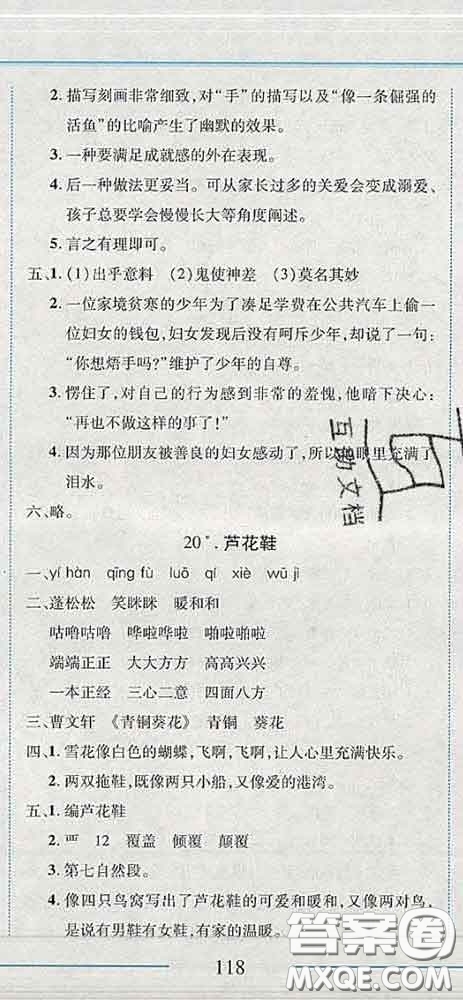 2. 描写刻画非常细致，对“手”的描写以及“像一条倔强的
活鱼”的比喻产生了幽默的效果。
3. 一种要满足成就感的外在表现。
4. 后一种做法更妥当。可从家长过多的关爱会变成溺爱、
孩子总要学会慢慢长大等角度阐述。
5. 言之有理即可。
五、1. (1)出乎意料 (2)鬼使神差 (3)莫名其妙
2. 一位家境贫寒的少年为了凑足学费在公共汽车上偷一
位妇女的钱包，妇女发现后没有呵斥少年，却说了一句：
“你想焐手吗？”维护了少年的自尊。
3. 愣住了，对自己的行为感到非常的羞愧，他暗下决心：
“再也不做这样的事了！”
4. 因为那位朋友被善良的妇女感动了，所以眼里充满了
泪水。
六、略。
20*. 芦花鞋
一、yí hàn qīng fù luō qí xiè wū jì
二、蓬松松 笑眯眯 暖和和
咕噜咕噜 哗啦哗啦 啪啦啪啦
端端正正 大大方方 高高兴兴
一本正经 三心二意 四面八方
三、曹文轩 《青铜葵花》 青铜 葵花
四、1. 雪花像白色的蝴蝶，飞啊，飞啊，让人心里充满快乐。
2. 两双拖鞋，既像两只小船，又像爱的港湾。
五、1. 编芦花鞋
2. 覀 12 覆盖 倾覆 颠覆
3. 第七自然段。
4. 像四只鸟窝写出了芦花鞋的可爱和暖和，又像两对鸟，
是说有男鞋有女鞋，有家的温暖。
118
互助文档
答案圈
MXQE.COM